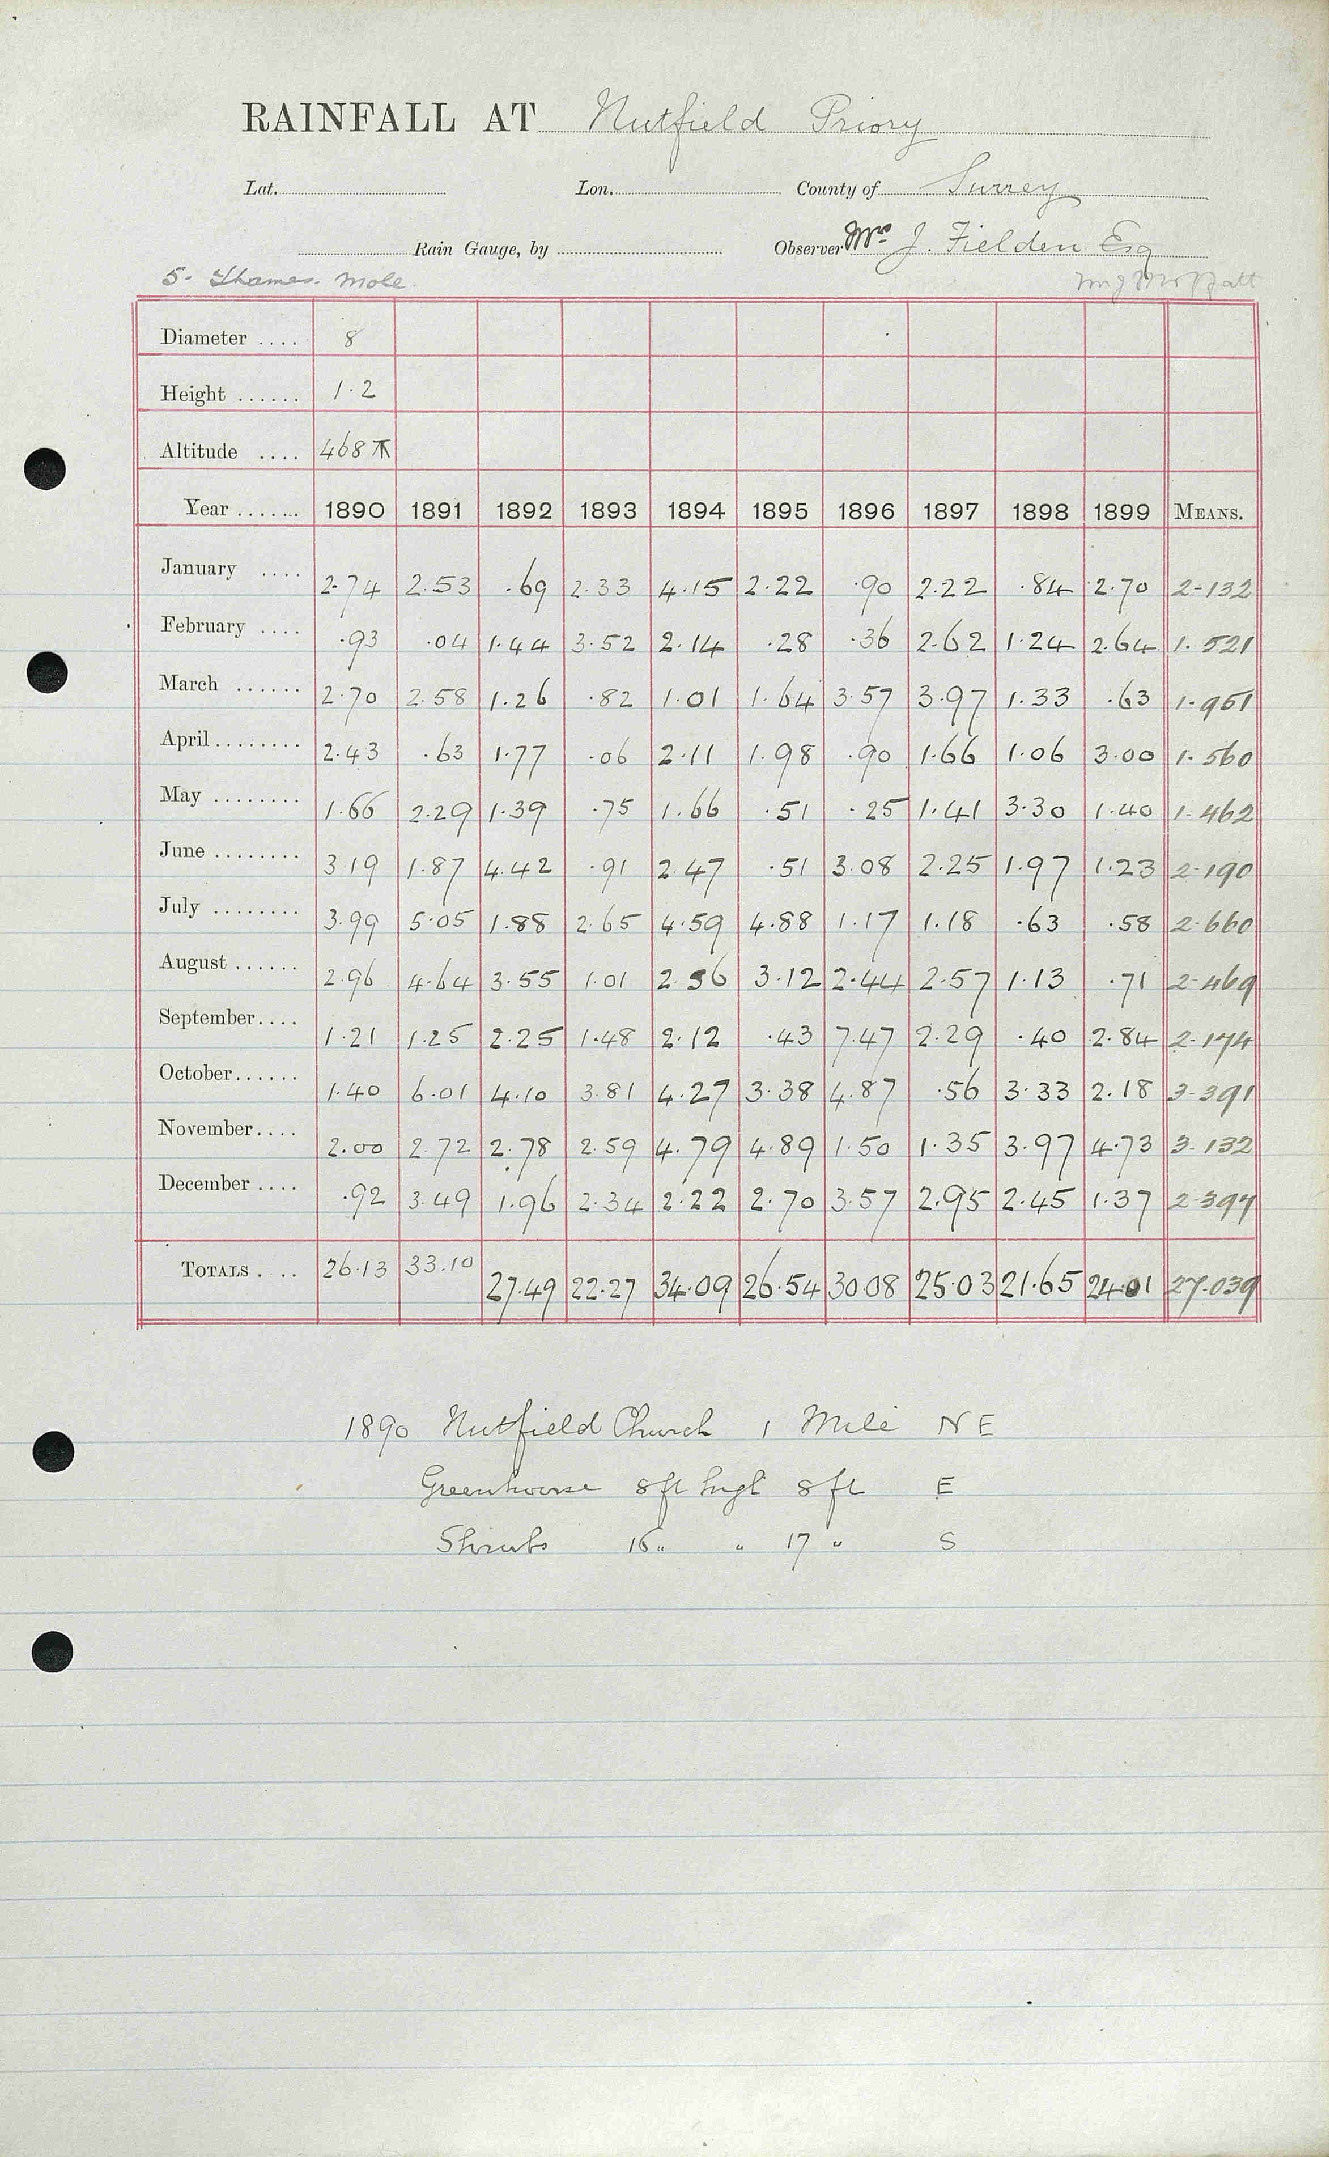 RAINFALL AT Nutfield Priory
Lat. Lon. County of Surrey
Rain Gauge, by Observer Mrs J. Fielden Esq
5. Thames. Mole
Diameter .... 8
Height ...... 1.2
Altitude .... 468
Year ....... 1890 1891 1892 1893 1894 1895 1896 1897 1898 1899 MEANS.
January .... 2.74 2.53 .69 2.33 4.15 2.22 .90 2.22 .84 2.70 2.132
February .... .93 .04 1.44 3.52 2.14 .28 .36 2.62 1.24 2.64 1.521
March ...... 2.70 2.58 1.26 .82 1.01 1.64 3.57 3.97 1.33 .63 1.951
April........ 2.43 .63 1.77 .06 2.11 1.98 .90 1.66 1.06 3.00 1.560
May ........ 1.66 2.29 1.39 .75 1.66 .51 .25 1.41 3.30 1.40 1.462
June ........ 3.19 1.87 4.42 .91 2.47 .51 3.08 2.25 1.97 1.23 2.190
July ........ 3.99 5.05 1.88 2.65 4.59 4.88 1.17 1.18 .63 .58 2.660
August ...... 2.96 4.64 3.55 1.01 2.56 3.12 2.44 2.57 1.13 .71 2.469
September.... 1.21 1.25 2.25 1.48 2.12 .43 7.47 2.29 .40 2.84 2.174
October...... 1.40 6.01 4.10 3.81 4.27 3.38 4.87 .56 3.33 2.18 3.391
November.... 2.00 2.72 2.78 2.59 4.79 4.89 1.50 1.35 3.97 4.73 3.132
December .... .92 3.49 1.96 2.34 2.22 2.70 3.57 2.95 2.45 1.37 2.397
TOTALS .... 26.13 33.10 27.49 22.27 34.09 26.54 30.08 25.03 21.65 24.01 27.039
1890 Nutfield Church 1 Mile NE
Greenhouse 8ft high 8ft E
Shrubs 16 " " 17 " S